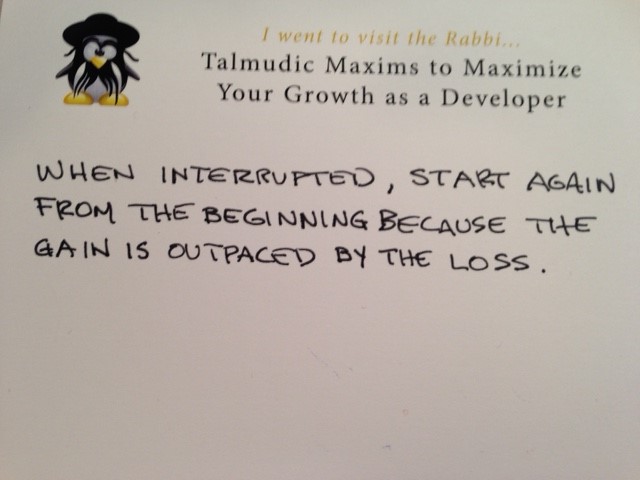 I went to visit the Rabbi...
Talmudic Maxims to Maximize
Your Growth as a Developer
WHEN INTERRUPTED, START AGAIN
FROM THE BEGINNING BECAUSE THE
GAIN IS OUTPACED BY THE LOSS.